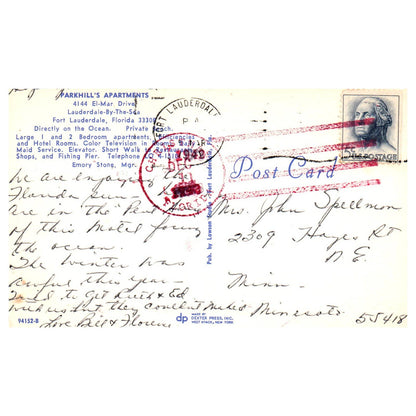 PARKHILL'S APARTMENTS
4144 El-Mar Drive
Lauderdale-By-The-Sea
Fort Lauderdale, Florida 33308
Directly on the Ocean. Private Beach.
Large 1 and 2 Bedroom apartments, Efficiencies
and Hotel Rooms. Color Television in Rooms. Daily
Maid Service. Elevator. Short Walk to Restaurants,
Shops, and Fishing Pier. Telephone
Emory Stone, Mgr.
FORT LAUDERDALE
1942
U.S. POSTAGE
Post Card
Pub. by Lawson
we are enjoying the
Florida sun
are in the
of this Motel facing
the ocean.
The winter was
awful this year—
to get Ruth & Ed
with us but they couldn't make it
Love Bill & Florence
Mrs. John Spellman
2309 Hayes St
N.E.
Minn—
Minnesota
55418
94152-B
dp
MADE BY
DEXTER PRESS, INC.
WEST NYACK, NEW YORK